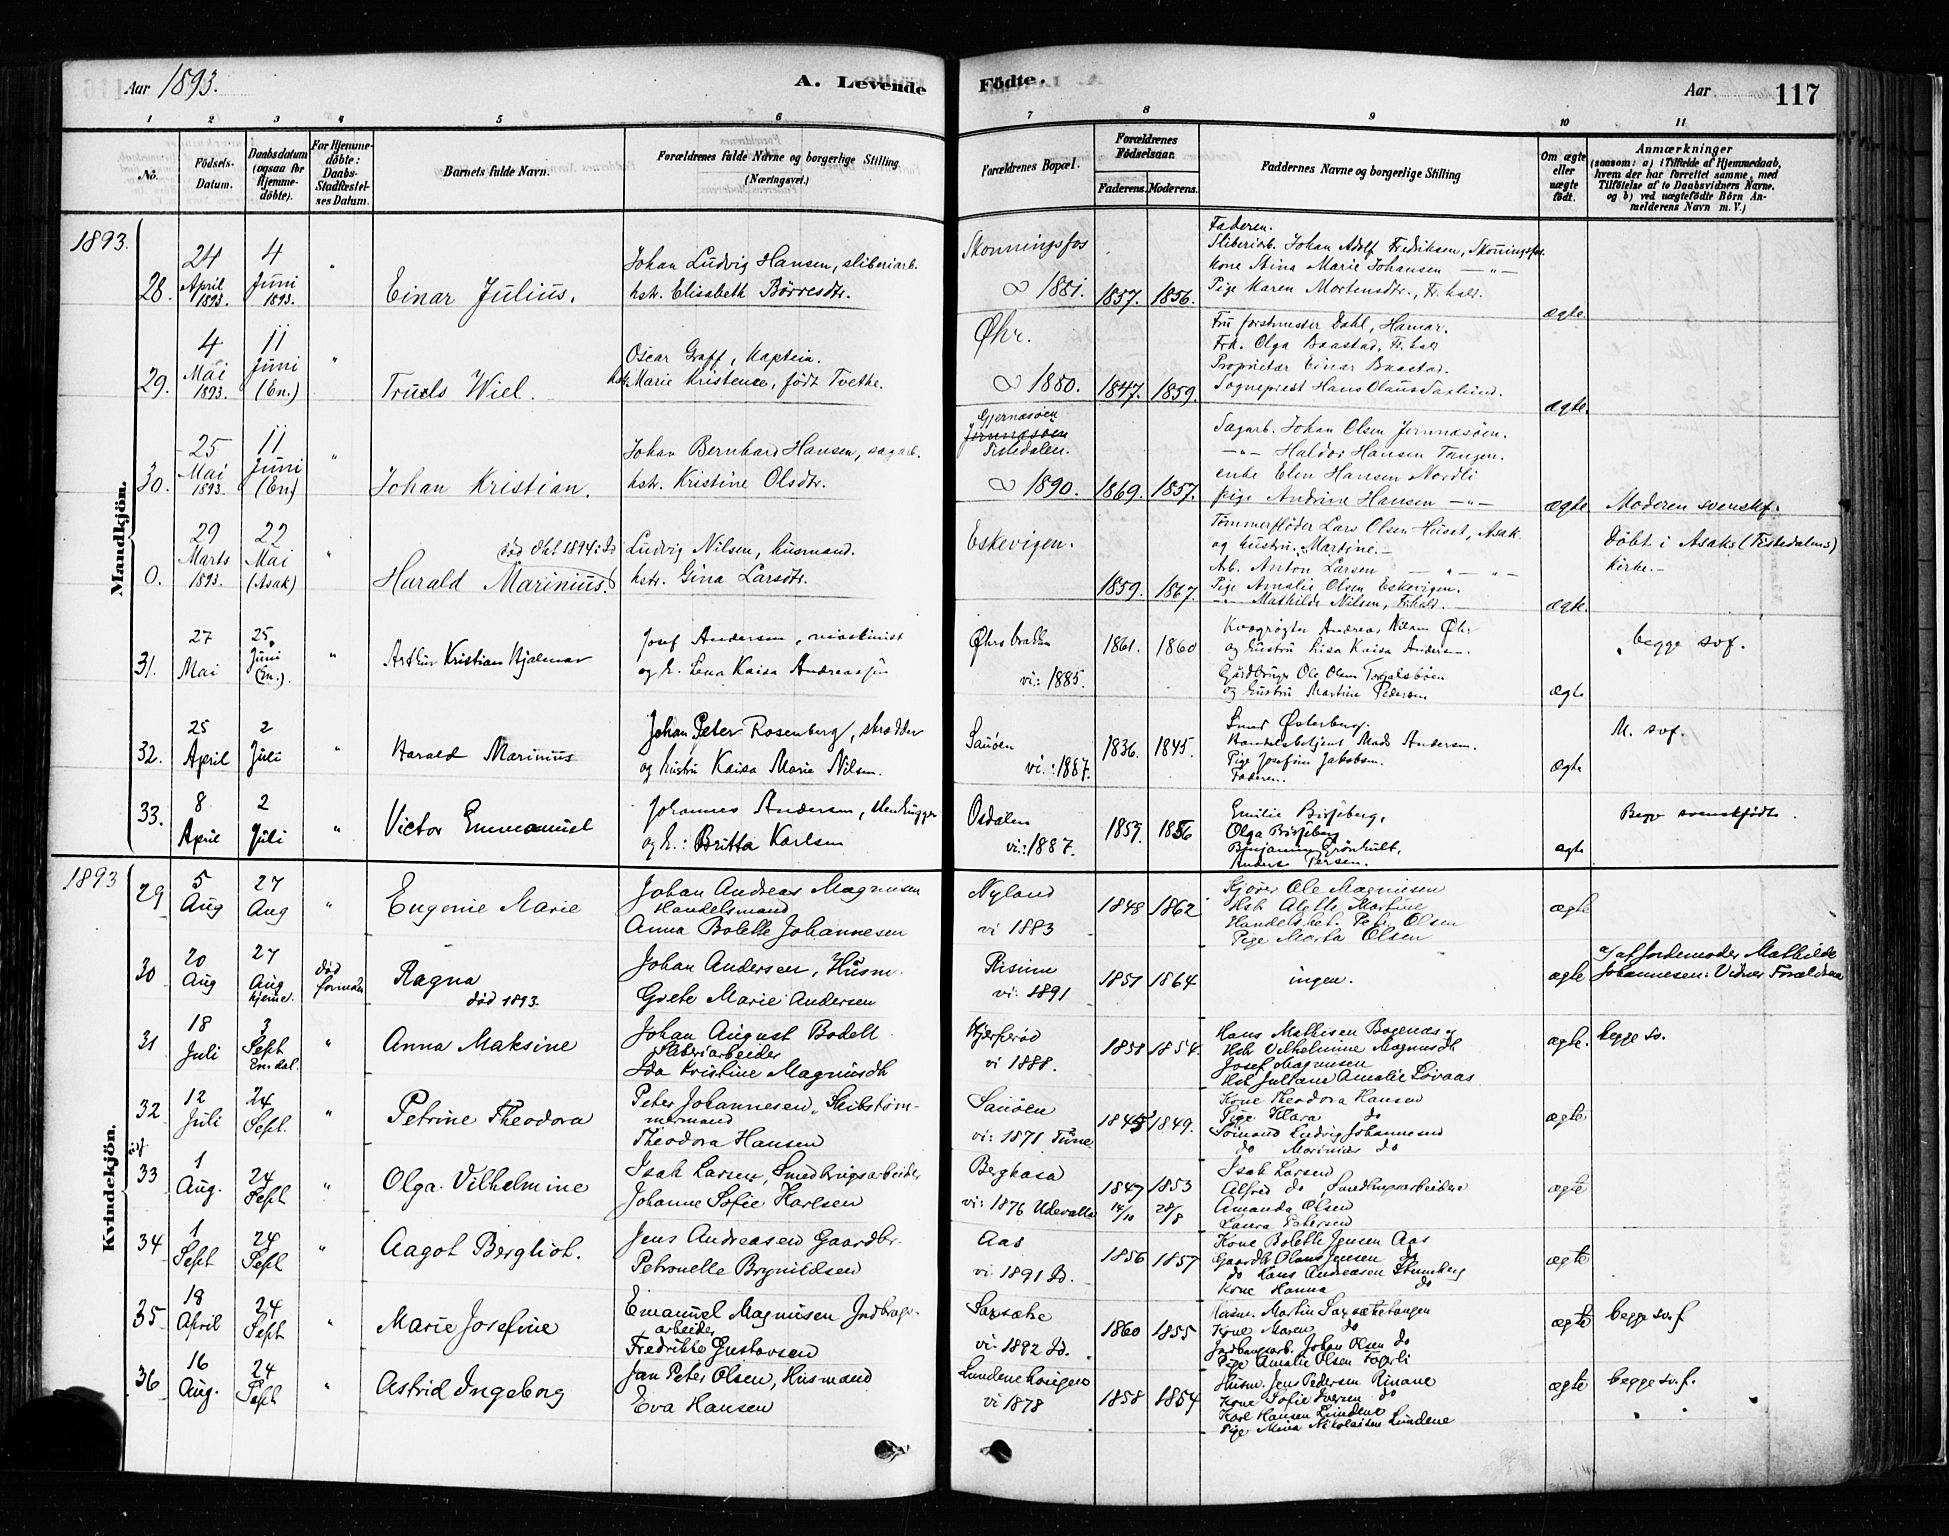 Aar 1893.
A. Levende
Fødte.
Aar
117
1 2 3 4 5 6 7 8 9 10 11
No.
Fødsels-Datum.
Daabsdatum (ogsaa for Hjemme-døbte).
For Hjemme-døbte: Daabs-Stadfæstel-ses Datum.
Barnets fulde Navn.
Forældrenes fulde Navne og borgerlige Stilling (Næringsvei.)
Forældrenes Bopæl.
Forældrenes Fødselsaar.
Faderens. Moderens.
Faddernes Navne og borgerlige Stilling
Om ægte eller uægte født.
Anmærkninger
(saasom: a) i Tilfælde af Hjemmedaab, hvem der har forrettet samme, med Tilføielse af to Daabsvidners Navne, og b) ved uægtefødte Børn An-melderens Navn m. V.)
Mandkjön.
1893.
28. 24 April 1893. 4 Juni 1893. "
Einar Julius.
Johan Ludvig Hansen, sliberiarb.
hstr. Elisabeth Börresdtr.
Skonningsfos
∞ 1881. 1857. 1856.
Faderen.
Sliberiarb. Johan Adolf Fredriksen, Skonningsfos.
Kone Stina Marie Johansen — " —
Pige Karen Mortensdtr., Fr.hald.
ægte.
29. 4 Mai 1893. 11 Juni (En.) "
Truels Wiel.
Oscar Graff, Kaptein.
hstr. Marie Kristence, født Tvethe.
Øhr.
∞ 1880. 1847. 1859.
Fru forstmester Dahl, Hamar.
Frk. Olga Baastad, Fr.hald
Proprietær Einar Baastad.
Sogneprest Hans Olaus Saxlund.
ægte.
30. 25 Mai 1893. 11 Juni (En) "
Johan Kristian.
Johan Bernhard Hansen, sagarb.
hstr. Kristine Olsdtr.
Gjernæsöen
Tistedalen.
∞ 1890. 1869. 1857.
Sagarb. Johan Olsen Jernnæsöen.
— " — Haldor Hansen Tangen.
enke Elen Hansen Nordli
pige Andrine Hansen — " —
ægte
Moderen svenskf.
0. 29 Marts 1893. 22 Mai (Asak) "
Harald Marinius.
Ludvig Nilsen, husmand.
hstr. Gina Larsdtr.
Eskevigen.
1859. 1867.
Tømmerfløder Lars Olsen Huset, Asak
og hustru Martine. —
Arb. Anton Larsen — " — " —
Pige Amalie Olsen Eskevigen.
— " — Mathilde Nilsen, Fr.hald. —
ægte.
Døbt i Asaks (Tistedalens)
Kirke. —
31. 27 Mai 25. Juni (En.). "
Arthur Kristian Hjalmar
Josef Andersen, maskinist
og h. Lena Kaisa Andreasen
Øhrsbakken
vi: 1885. 1861. 1860
Kvægrøgter Andreas Nilsen Øhr
og hustru Lisa Kaisa Andersen.
Gårdbruger Ole Olsen
og hustru Martine Pedersen
ægte
begge svf.
32. 25 April 2 Juli "
Harald Marinius
Johan Peter Rosenberg, skrædder
og hustru Kaisa Marie Nilsen.
Sauöen
vi.: 1887. 1836. 1845.
Smed Østerberg.
Handelsbetjent Mads Andersen.
Pige Josefine Jakobsen.
Faderen.
ægte
M. svf.
33. 8 April 2 Juli "
Victor Emmanuel
Johannes Andersen, stenhugger
og h.: Britta Karlsen
Osdalen
vi.: 1887. 1859. 1856
Emilie Birjeberg,
Olga Birjeberg
Benjamin Grönhult,
Anders Persen.
ægte
Begge svenskfödte.
Kvindekjön.
1893
29 5 Aug 27 Aug "
Eugenie Marie
Johan Andreas Magnusen
Handelsmand
Anna Bolette Johannesen
Nyland
vi 1883 1848 1862
Kjører Ole Magnusen
Hst Alette Martine
Handelsbet. Peter Olsen
Pige Marta Olsen
ægte
30 20 Aug 27 Aug hjeme. död
Ragna
død 1893.
Johan Andersen, Husm.
Grete Marie Andersen
Risinn
vi: 1891 1851 1864
ingen.
ægte
a/ af Jordemoder Mathilde
Johannesen: Vidner Forældrene
31 18 Juli 3 Sept En.dal. "
Anna Maksine
Johan August Bodell
Sliberiarbeider
Ida Kristine Magnusdtr
Hjerterød
vi 1888. 1858 1854.
Hans Mathisen Bogenæs og
Hst Vilhelmine Magnusdtr
Josef Magnusen
Hst Juliane Amalie Løvaas
ægte.
begge sv.
32 12 Juli 24 Sept. "
Petrine Theodora
Peter Johannesen, Skibstøm-
mermand
Theodora Hansen
Sauöen
vi: 1871 Tune 1845 1849.
Kone Theodora Hansen
Pige Klara do
Sömand Ludvig Johannesen
do Marinius do
ægte
33 1 Aug. 24 Sept "
Olga Vilhelmine
Isak Larsen, Smedbrugsarbeider
Johanne Sofie Karlsen
Berghasa
vi: 1876 Udevalla 1847 14/10 1853 28/8
Isak Larsen
Alfred do, Smedbrugsarbeidere
Amanda Olsen
Laura Petersen
ægte
34 1 Sept 24 Sept "
Aagot Bergliot.
Jens Andreasen Gaardbr.
Petronelle Brynildsen
Aas
vi 1891 Id. 1856 1857
Kone Bolette Jensen Aas
Gaardbr Olaus Jensen do
do Hans Andreasen Stumberg
Kone Hanna do
ægte
35 18 April 24 Sept "
Marie Josefine
Emanuel Magnusen Jordbrugs-
arbeider
Fredrikke Gustavsen
Saxsæke
vi 1892 Id. 1860 1855
Husm. Martin Saxsæketangen
Kone Maren do
Jordbrugsarb. Johan Olsen do
Pige Amalie Olsen Fagerli
ægte
begge sv.f
36 16 Aug. 24 Sept "
Astrid Ingeborg
Jan Peter Olsen, Husmand
Eva Hansen
vi 1878 1858 1854
Husm. Jens Pedersen Rinane
Kone Sofie Iversen do
Karl Hansen Lundene
Pige Mina Nikolaisen Lundene
ægte
begge sv.f.